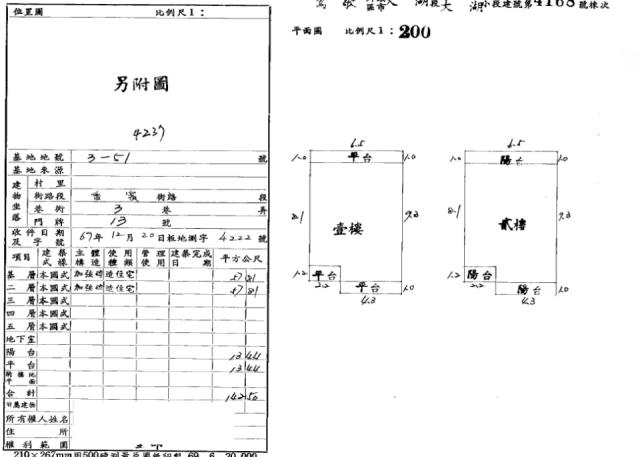 位置圖 比例尺1：
另附圖
4237
基地地號 3-51 號
基地來源
建物坐落 村里
街路段 街路 段
巷衖 3 巷 弄
門牌 13 號
收件日期及字號 69年12月20日板地測字4222號
項目 建築式樣 主體構造 使用種類 管理使用 建築完成日期 平方公尺
基層 本國式 加強磚造 住宅 57 81
二層 本國式 加強磚造 住宅 57 81
三層 本國式
四層 本國式
五層 本國式
地下室
陽台 13 44
平台 13 44
合計 142 50
附屬建物
所有權人姓名
住所
權利範圍
210×267mm
69. 6. 20,000
區市 湖段大湖小段建號第4168號棟次
平面圖 比例尺1：200
6.5
1.0 平台 1.0
8.1 壹樓 9.3
1.2 平台
2.2 平台 1.0
4.3
6.5
1.0 陽台 1.0
8.1 貳樓 9.3
1.2 陽台
2.2 陽台 1.0
4.3